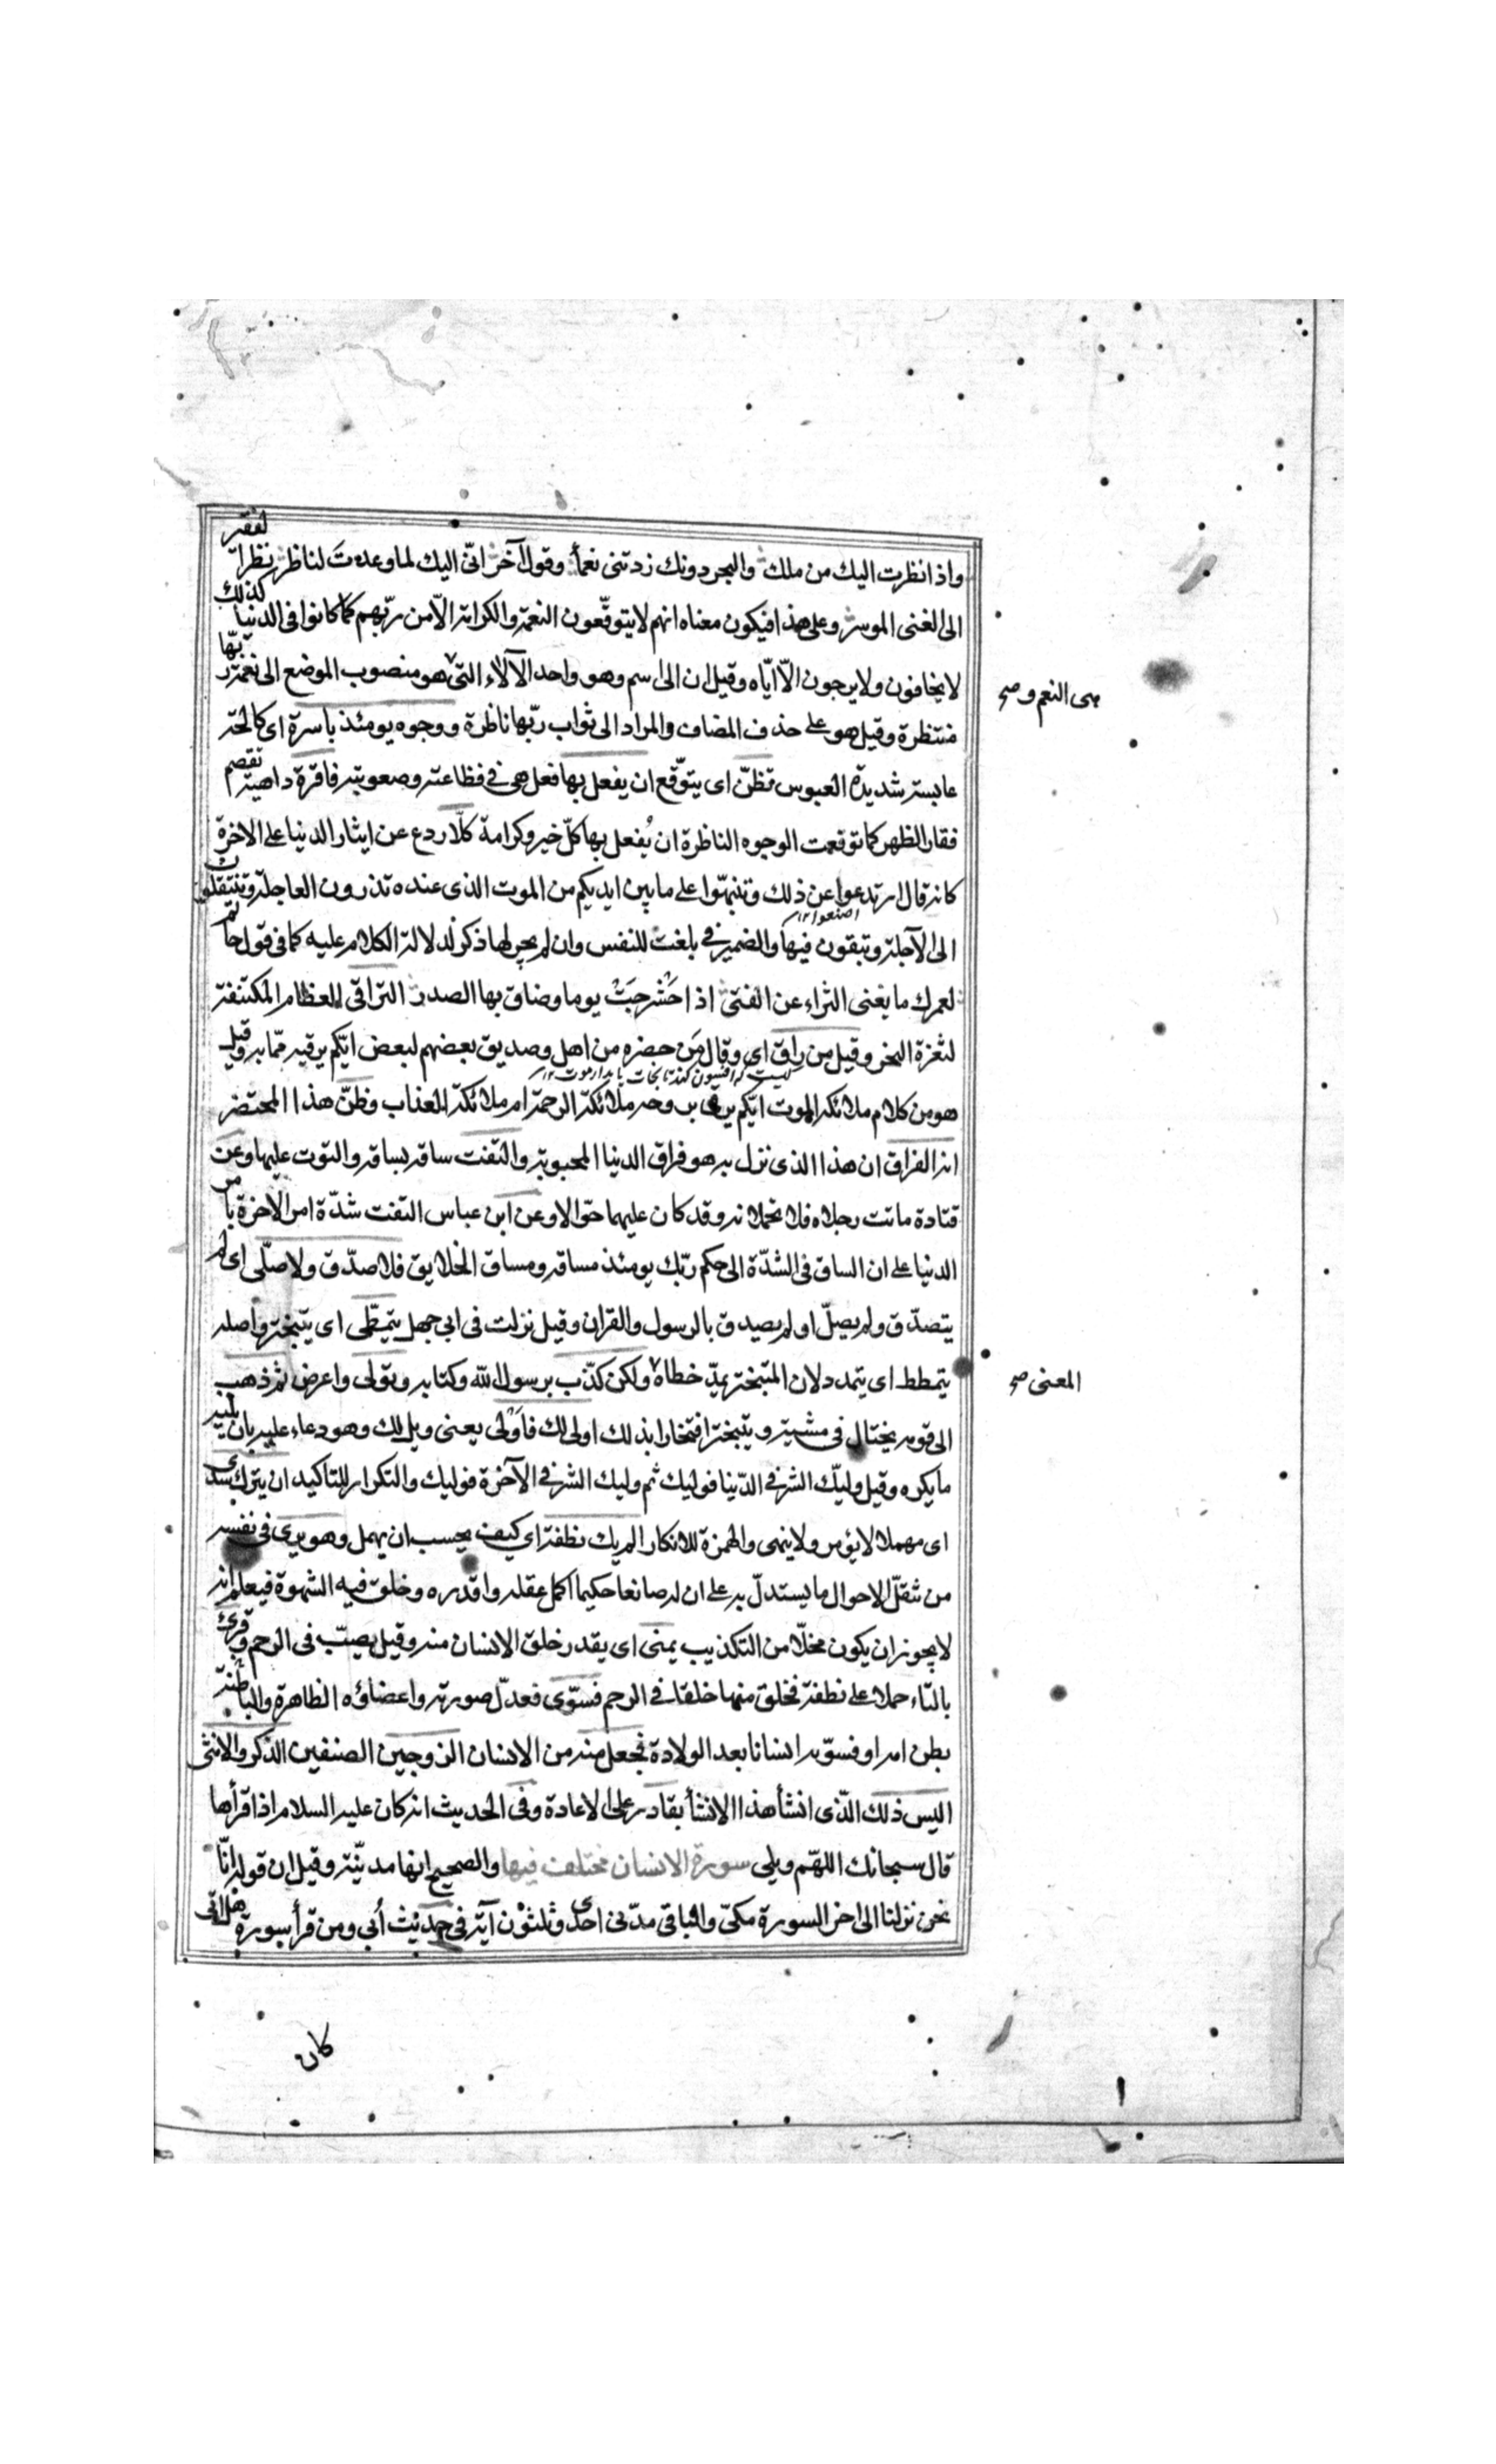 واذا نظرت اليك من ملك والبحر دونك زدتنى نعما وقول آخر انّى اليك لما وعدت لناظر نظر الفقير
الى الغنى الموسر وعلى هذا فيكون معناه انهم لا يتوقّعون النعمة والكرامة الّا من ربّهم كما كانوا فى الدنيا كذلك
لا يخافون ولا يرجون الّا ايّاه وقيل ان الى اسم وهو واحد الآلاء التى هو منصوب الموضع اى نعمة ربّها
هى النعم و صح
منتظرة وقيل هو على حذف المضاف والمراد الى ثواب ربّها ناظرة ووجوه يومئذ باسرة اى كالحة
عابسة شديدة العبوس تظنّ اى يتوقّع ان يفعل بها فعل هى فى فظاعته وصعوبته فاقرة داهية تقصم
فقار الظهر كما توقعت الوجوه الناظرة ان يُفعل بها كلّ خير وكرامة كلّا ردع عن ايثار الدنيا على الاخرة
كانه قال ارتدعوا عن ذلك وتنبهّوا على ما بين ايديكم من الموت الذى عنده تذرون العاجلة وتنتقلون
الى الآجلة وتبقون فيها والضمير فى بلغت للنفس وان لم يجر لها ذكر لدلالة الكلام عليه كما فى قول حاتم
لعمرك ما يغنى الثراء عن الفتى اذا حشرجت يوما وضاق بها الصدر التراقى العظام المكتنفة
لثغرة النحر وقيل من راق اى وقال من حضره من اهل وصديق بعضهم لبعض ايّكم يرقيه ممّا به وقيل
هو من كلام ملائكة الموت ايّكم يرقى بروحه ملائكة الرحمة ام ملائكة العذاب وظنّ هذا المحتضر
انه الفراق ان هذا الذى نزل به هو فراق الدنيا المحبوبة والتفت ساقه بساقه والتوت عليها وعن
قتادة ماتت رجلاه فلا تحملانه وقد كان عليهما جوّالا وعن ابن عباس التفت شدّة امر الاخرة بامر
الدنيا على ان الساق فى الشدّة الى حكم ربّك يومئذ مساقه ومساق الخلايق فلا صدّق ولا صلّى اى لم
يتصدّق ولم يصلّ او لم يصدق بالرسول والقران وقيل نزلت فى ابى جهل يتمطّى اى يتبختر واصله
يتمطط اى يتمدد لان المتبختر يمدّ خطاه ولكن كذّب برسول الله وكتابه وتولى واعرض ثم ذهب
المعنى صح
الى قومه يختال فى مشيته ويتبختر افتخارا بذلك اولى لك فاولى يعنى ويل لك وهو دعاء عليه بان يليه
ما يكره وقيل وليّك الشر فى الدّنيا فوليك ثم وليك الشر فى الآخرة فوليك والتكرار للتاكيد ان يترك سدى
اى مهملا لا يؤمر ولا ينهى والهمزة للانكار الم يك نطفة اى كيف يحسب ان يهمل وهو يرى فى نفسه
من تنقّل الاحوال ما يستدلّ به على ان له صانعا حكيما اكمل عقله واقدره وخلق فيه الشهوة فيعلم انه
لا يجوز ان يكون مخلّا من التكذيب يمنى اى يقدر خلق الانسان منه وقيل يصبّ فى الرحم وقرئ
بالتاء حملا على نطفة فخلق منها خلقا فى الرحم فسوّى فعدّل صورته واعضاؤه الظاهرة والباطنة
بطن امه او فسوّيه انسانا بعد الولادة فجعل منه من الانسان الزوجين الصنفين الذكر والانثى
اليس ذلك الّذى انشأ هذا الانشأ بقادر على الاعادة وفى الحديث انه كان عليه السلام اذا قرأها
قال سبحانك اللهّم وبلى سورة الانسان مختلف فيها والصحيح انها مدنيّة وقيل ان قوله انّا
نحن نزلنا الى اخر السورة مكىّ والباقى مدنى احدى وثلثون آية فى حديث اُبى ومن قرأ سورة هل اتى
كان